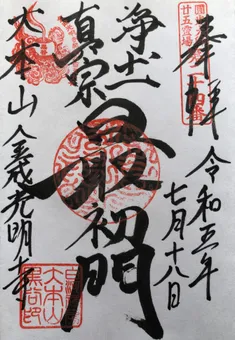 奉拝
廿五霊場
令和五年
七月十八日
浄土
真宗
最初門
大本山
金戒光明寺
大本山